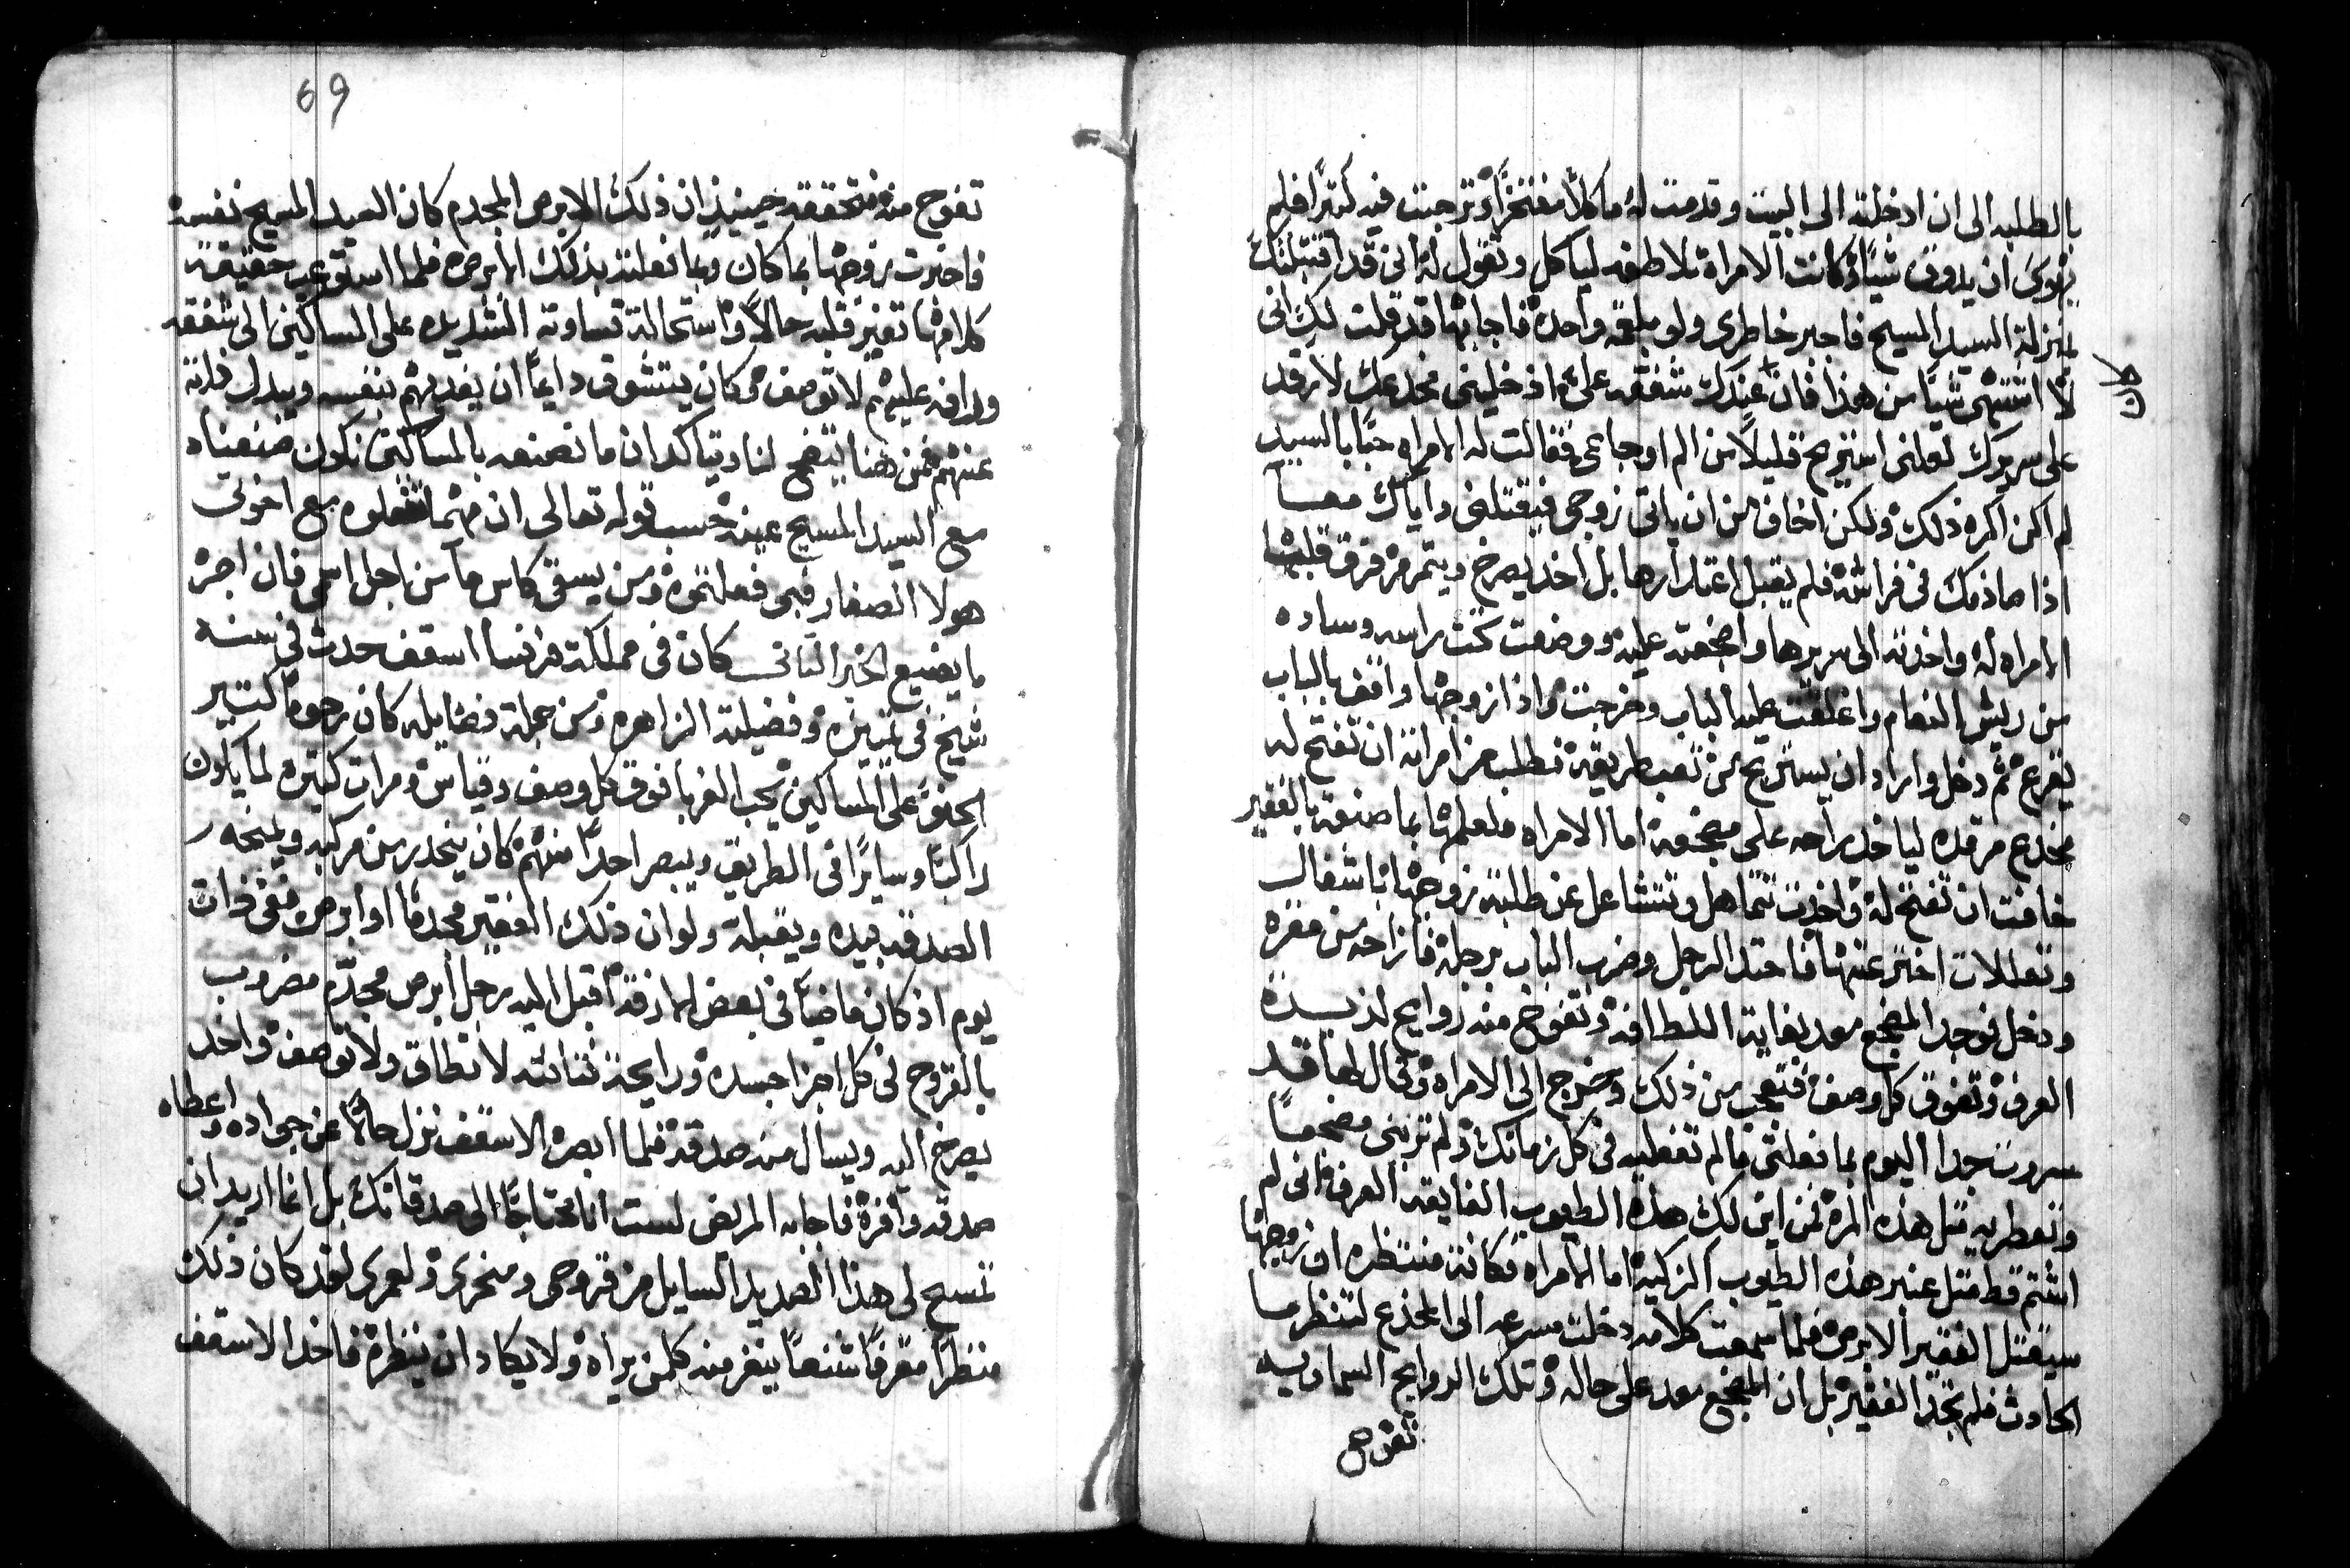 بالطلبه الى ان ادخلته الى البيت وقدمت له ماكلاً مفتخراً وترجت فيه كثيرًا فلم
يهوى ان يذوق شيًا وكانت الامراة تلاطفه لياكل وتقول له انى قد اقتبلتك
بمنزلة السيد المسيح فاجبر خاطرى ولو بلقمه واحدة فاجابها قد قلت لك انى
لا اشتهى شيًا من هذا فان كان عندك شفقه على ادخلينى مخدعك لارقد
على سريرك لعلنى استريح قليلاً من الم اوجاعى فقالت له الامراه حبًا بالسيد
لم اكن اكره ذلك ولكن اخاف من ان ياتى زوجى فيقتلنى واياك معا
اذا صادفك فى فراشه فلم يقبل اعتذارها بل اخذ يصرخ ويتمرمر فرق قلبها
الامراه له واخذته الى سريرها واضجعته عليه ووضعت تحت راسه وساده
من ريش النعام واغلقت عليه الباب وخرجت واذا زوجها واقف بالباب
يقرع ثم دخل واراد ان يستريح من تعب طريقه فطلب من امراته ان تفتح له
مخدع مرقده لياخذ راحه على مضجعه اما الامراه فلعلمها بما صنعته بالفقير
خافت ان تفتح له واخذت تتماهل وتتشاغل عن طلبة زوجها باشغال
وتعللات اخر عنها فاحتد الرجل وضرب الباب برجله فازاحه من مقره
ودخل فوجد المضجع معد بغاية اللطافه وتفوح منه روايح لذيذة
العرف وتفوق كل وصف فتعجب من ذلك وخرج الى الامراه وقال لها قد
سررت جدا اليوم بما فعلتى ما لم تفعليه فى كل زمانك ولم ترتبى مضجعًا
وتعطريه مثل هذه المره فمن اين لك هذه الطيوب الفايقه العرف فانى لم
اشتم قط مثل عنبر هذه الطيوب الزكيه اما الامراه فكانت منتظره ان زوجها
سيقتل الفقير الابرص فلما سمعت كلامه دخلت مسرعه الى المخدع لتنظر ما
الحادث فلم تجد الفقير بل ان المضجع معد على حاله وتلك الروايح السماويه
تفوح
كان
69
تفوح منه فتحققه حينيذٍ ان ذلك الابرص المجدم كان السيد المسيح نفسه
فاخبرت زوجها بما كان وبما فعلته بذلك الابرص فلما استوعب حقيقة
كلامها تغير قلبه حالاً واستحالة قساوته الشديده على المساكين الى شفقه
ورافه عليهم لا توصف وكان يتشوق دايماً ان يفديهم بنفسه ويبدل ذاته
عنهم فمن هنا يتضح لنا ويتاكد ان ما نصنعه بالمساكين نكون صنعناه
مع السيد المسيح عينه حسب قوله تعالى ان مهما تفعلوه مع اخوتى
هولا الصغار فبى فعلتموه ومن يسقى كاس ما من اجل اسمى فان اجره
ما يضيع الخبر الثانى كان فى مملكة فرنسا اسقف حدث فى سنه
شيخ فى تمييزه وفضيلته الزاهره ومن جملة فضايله كان رحومًا كثير
الحنو على المساكين يحب الغربا فوق كل وصف وقياس ومرات كثيره لما يكون
راكبًا وسايرًا فى الطريق ويبصر احدًا منهم كان ينحدر من مركبه ويمنحه
الصدقه بيده ويقبله ولو ان ذلك الفقير مجدمًا او ابرص ففى ذات
يوم اذ كان ماضيًا فى بعض الازقه اقبل اليه رجل ابرص مجدّم مضروب
بالقروح فى كل اجزا جسده ورايحة نتانته لا تطاق ولا توصف واخذ
يصرخ اليه ويسال منه صدقة فلما ابصره الاسقف نزل حالاً عن جواده واعطاه
صدقه وافرة فاجابه المريض لست انا محتاجًا الى صدقاتك بل انما اريد ان
تمسح لى هذا الصديد السايل من قروحى ومنخرى ولعمرى لقد كان ذلك
منظرًا مقرفًا شنعًا ينفر منه كلمن يراه ولا يكاد ان ينظره فاخذ الاسقف